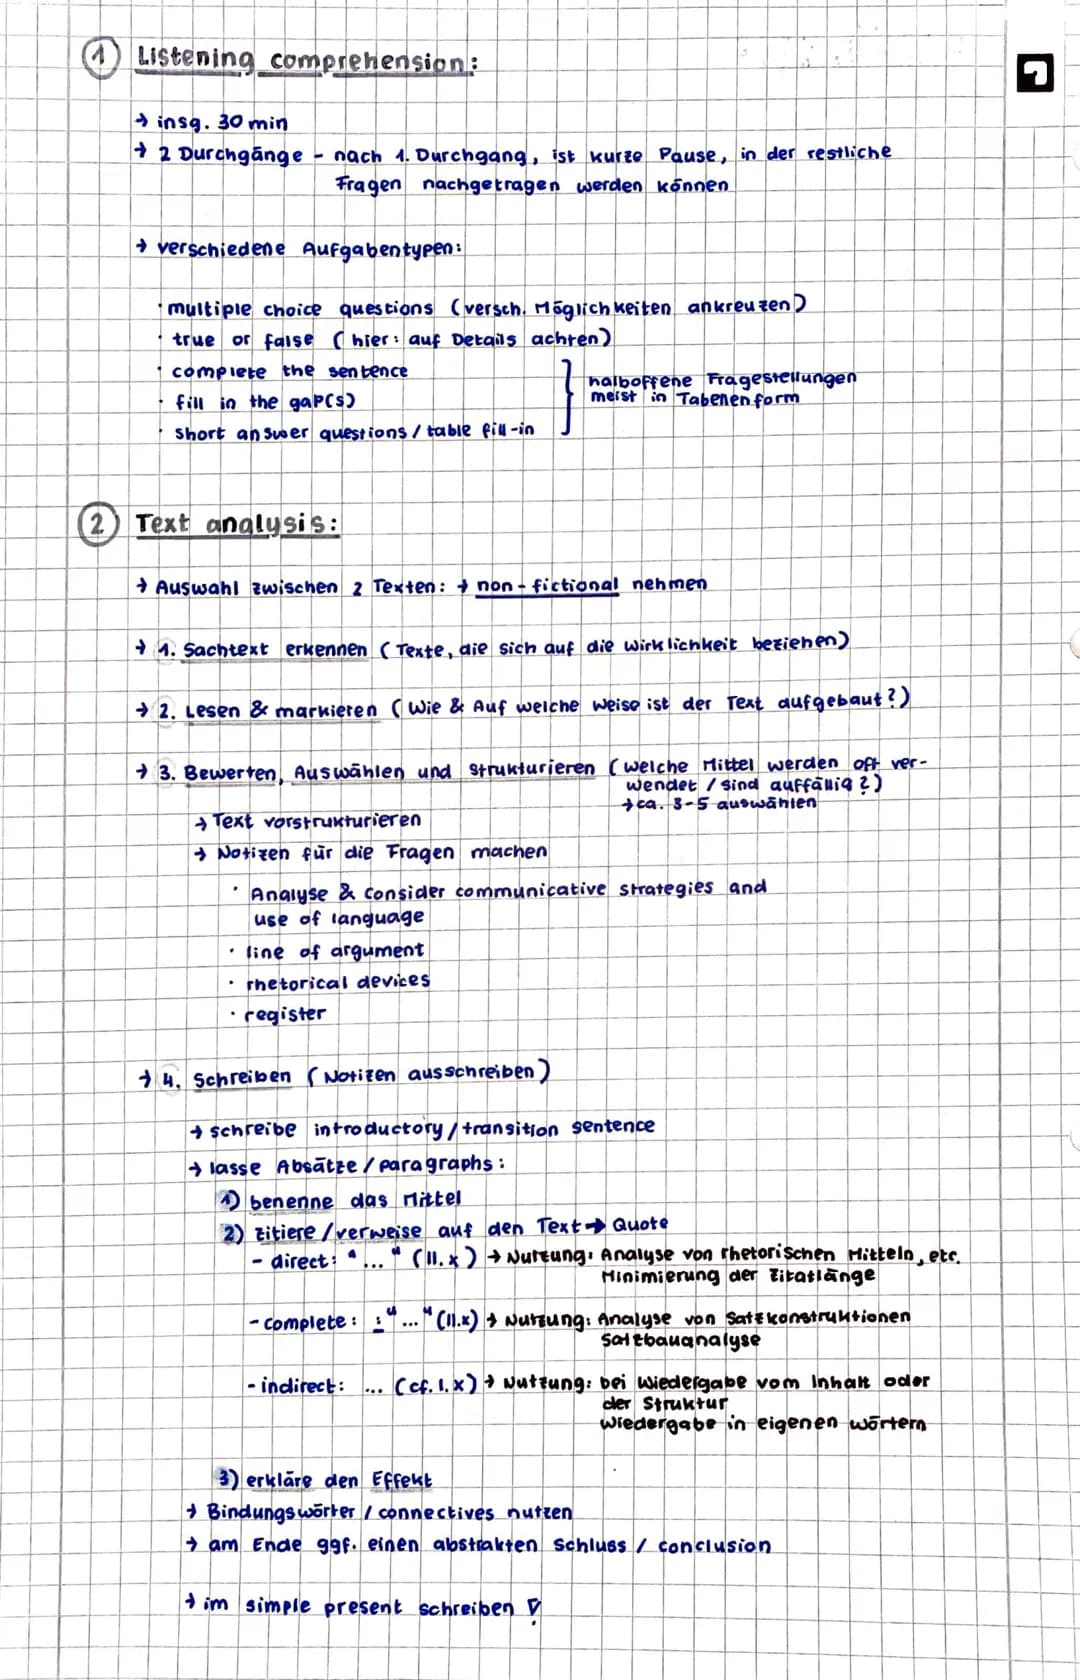 1 Listening comprehension:
→ insg. 30 min
→ 2 Durchgänge - nach 1. Durchgang, ist kurze Pause, in der restliche
Fragen nachgetragen werden können
→ verschiedene Aufgabentypen:
· multiple choice questions (versch. Möglichkeiten ankreuzen)
· true or false (hier: auf Details achten)
· complete the sentence
· fill in the gap(s)
· short answer questions / table fill-in
halboffene Fragestellungen
meist in Tabellenform
2 Text analysis:
→ Auswahl zwischen 2 Texten: → non-fictional nehmen
→ 1. Sachtext erkennen (Texte, die sich auf die Wirklichkeit beziehen)
→ 2. Lesen & markieren (Wie & Auf welche Weise ist der Text aufgebaut?)
→ 3. Bewerten, Auswählen und strukturieren (welche Mittel werden oft ver-
wendet / sind auffällig?)
→ ca. 3-5 auswählen
→ Text vorstrukturieren
→ Notizen für die Fragen machen
· Analyse & consider communicative strategies and
use of language
· line of argument
· rhetorical devices
· register
→ 4. Schreiben (Notizen ausschreiben)
→ schreibe introductory/transition sentence
→ lasse Absätze/paragraphs:
1) benenne das Mittel
2) zitiere/verweise auf den Text → Quote
- direct: "..." (ll. x) → Nutzung: Analyse von rhetorischen Mitteln, etc.
Minimierung der Zitatlänge
- complete: :"..." (ll.x) → Nutzung: Analyse von Satzkonstruktionen
Satzbauanalyse
- indirect: ... (cf. l. x) → Nutzung: bei Wiedergabe vom Inhalt oder
der Struktur
Wiedergabe in eigenen Wörtern
3) erkläre den Effekt
→ Bindungswörter / connectives nutzen
→ am Ende ggf. einen abstrakten Schluss / conclusion
→ im simple present schreiben !